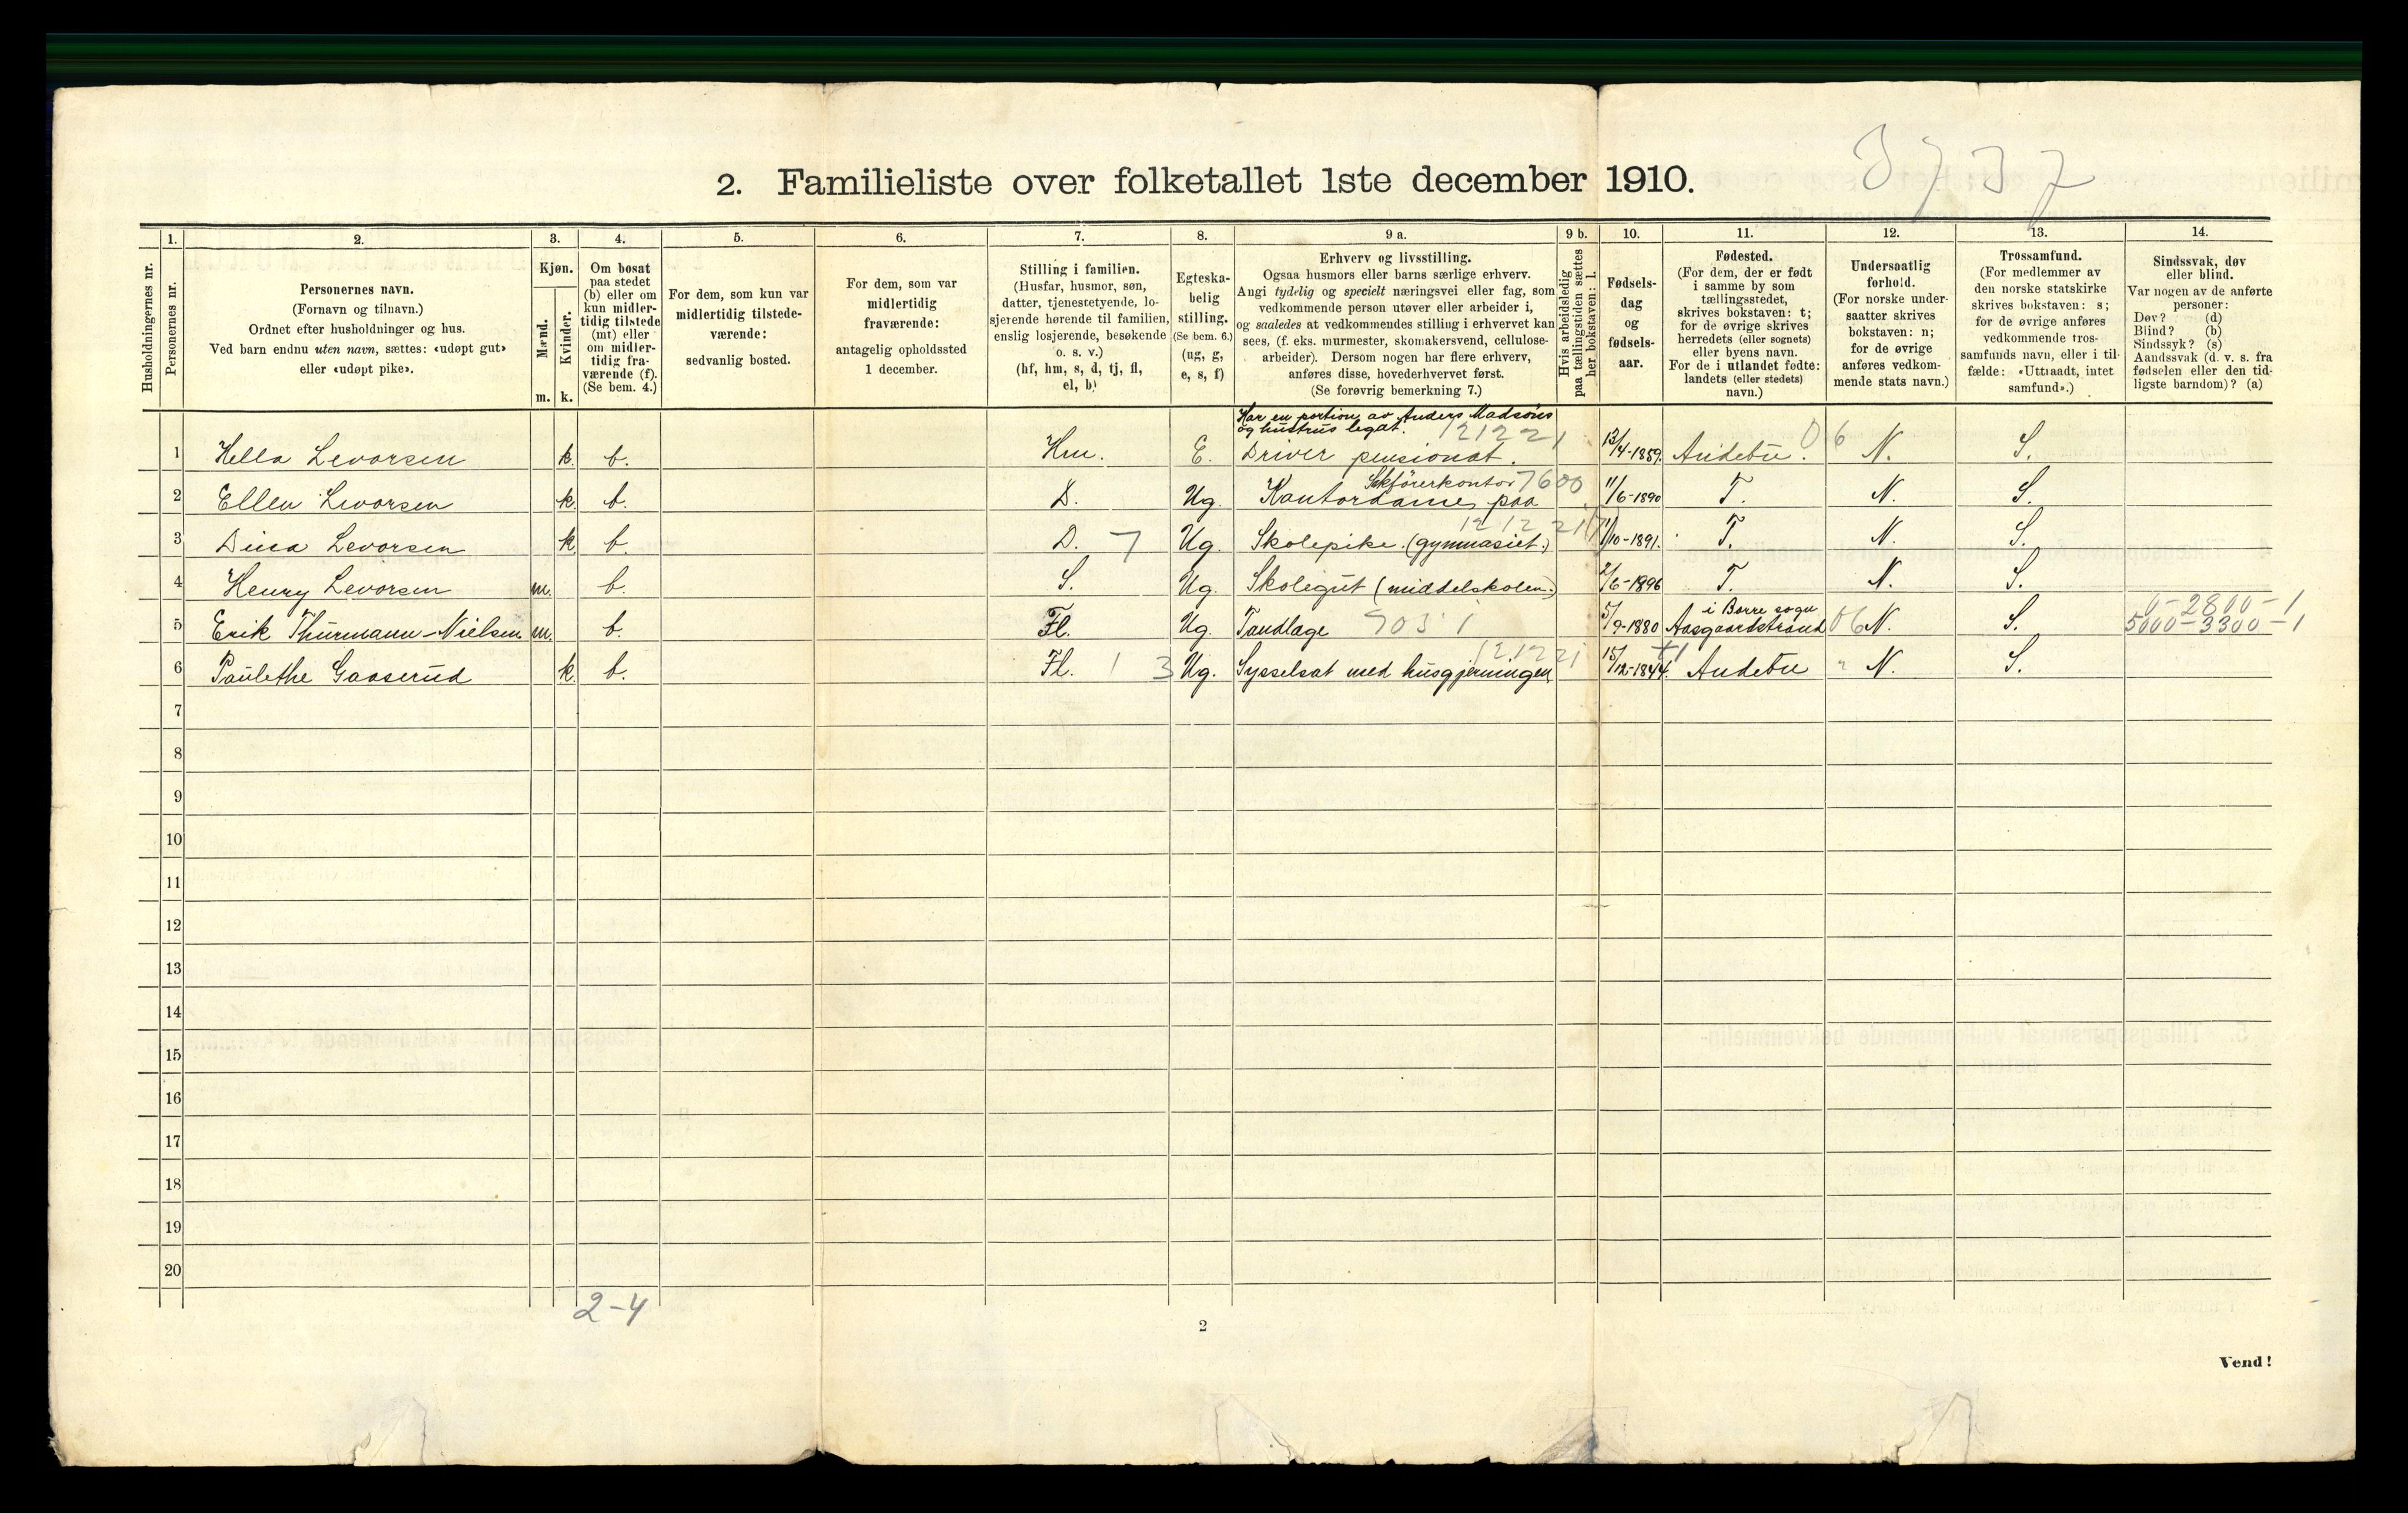 2. Familieliste over folketallet 1ste december 1910.
Husholdningernes nr.
1.
Personernes nr.
2.
Personernes navn.
(Fornavn og tilnavn.)
Ordnet efter husholdninger og hus.
Ved barn endnu uten navn, sættes: «udøpt gut»
eller «udøpt pike».
3.
Kjøn.
Mænd.
Kvinder.
m. k.
4.
Om bosat
paa stedet
(b) eller om
kun midler-
tidig tilstede
(mt) eller
om midler-
tidig fra-
værende (f).
(Se bem. 4.)
5.
For dem, som kun var
midlertidig tilstede-
værende:
sedvanlig bosted.
6.
For dem, som var
midlertidig
fraværende:
antagelig opholdssted
1 december.
7.
Stilling i familien.
(Husfar, husmor, søn,
datter, tjenestetyende, lo-
sjerende hørende til familien,
enslig losjerende, besøkende
o. s. v.)
(hf, hm, s, d, tj, fl,
el, b)
8.
Egteska-
belig
stilling.
(Se bem. 6.)
(ug, g,
e, s, f)
9 a.
Erhverv og livsstilling.
Ogsaa husmors eller barns særlige erhverv.
Angi tydelig og specielt næringsvei eller fag, som
vedkommende person utøver eller arbeider i,
og saaledes at vedkommendes stilling i erhvervet kan
sees, (f. eks. murmester, skomakersvend, cellulose-
arbeider). Dersom nogen har flere erhverv,
anføres disse, hovederhvervet først.
(Se forøvrig bemerkning 7.)
9 b.
Hvis arbeidsledig
paa tællingstiden sættes
her bokstaven: l.
10.
Fødsels-
dag
og
fødsels-
aar.
11.
Fødested.
(For dem, der er født
i samme by som
tællingsstedet,
skrives bokstaven: t;
for de øvrige skrives
herredets (eller sognets)
eller byens navn.
For de i utlandet fødte:
landets (eller stedets)
navn.)
12.
Undersaatlig
forhold.
(For norske under-
saatter skrives
bokstaven: n;
for de øvrige
anføres vedkom-
mende stats navn.)
13.
Trossamfund.
(For medlemmer av
den norske statskirke
skrives bokstaven: s;
for de øvrige anføres
vedkommende tros-
samfunds navn, eller i til-
fælde: «Uttraadt, intet
samfund».)
14.
Sindssvak, døv
eller blind.
Var nogen av de anførte
personer:
Døv? (d)
Blind? (b)
Sindssyk? (s)
Aandssvak (d. v. s. fra
fødselen eller den tid-
ligste barndom)? (a)
Har en portion av Anders Madsöns
og hustrus legat. 121221
1 Hella Levorsen k. b. Hm. E. Driver pensionat. 13/4-1859. Andebu. 06 N. S.
Sakförerkontor 7600
2 Ellen Levorsen k. b. D. Ug. Kontordame paa 11/6-1890 T. N. S.
121221
3 Dina Levorsen k. b. D. 7 Ug. Skolepike. (gymnasiet.) /10-1891. T. N. S.
4 Henry Levorsen m. b. S. Ug. Skolegut (middelskolen.) 2/6-1896 T. N. S.
i Borre sogn 0-2800-1
5 Erik Thurmann-Nielsen m. b. Fl. Ug. Tandlæge 5/9-1880 Aasgaardstrand 06 N. S. 5000-3300-1
121221
6 Paulethe Gaaserud k. b. Fl. 1 3 Ug. Sysselsat med husgjerningen 15/12-1844. Andebu " N. S.
7
8
9
10
11
12
13
14
15
16
17
18
19
20
2-4
2
Vend!